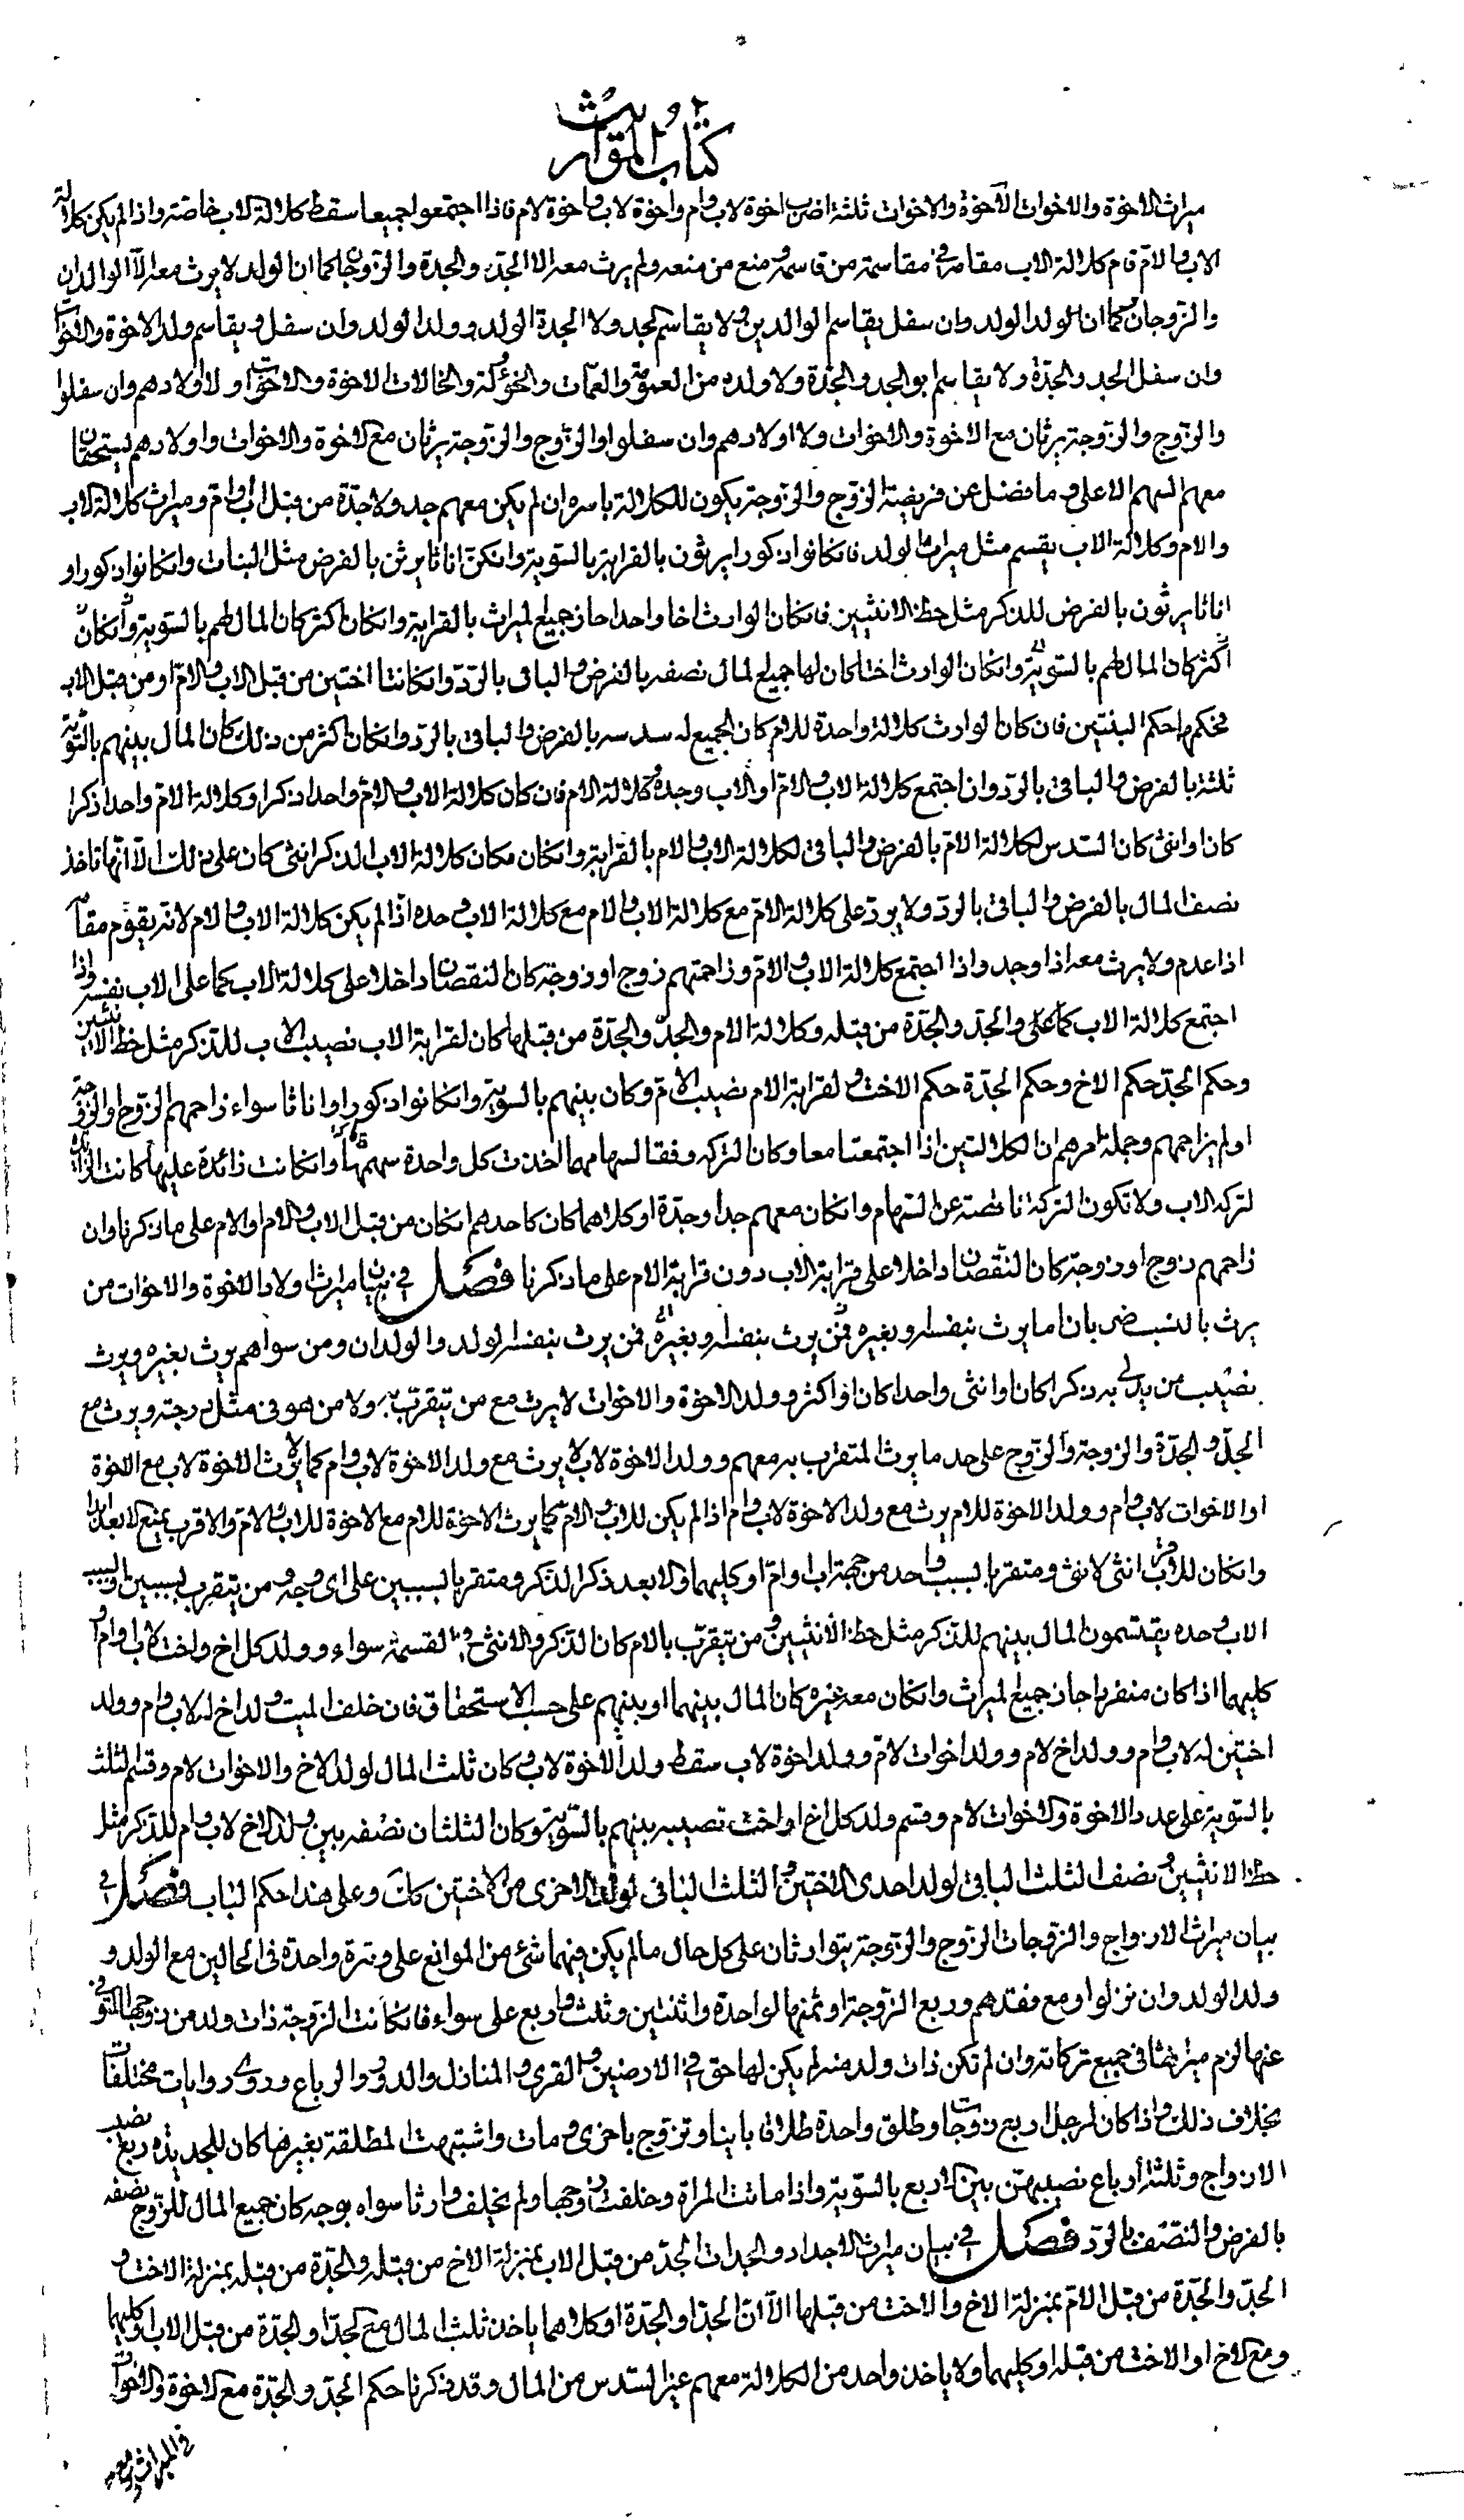 كتاب المواريث
ميراث الاخوة والاخوات الاخوة والاخوات ثلثة اضرب اخوة لاب وام واخوة لاب واخوة لام فاذا اجتمعوا جميعا سقط كلالة الاب خاصة واذا لم يكن كلالة
الاب والام قام كلالة الاب مقامه في مقاسمة من قاسمه ومنع من منعه ولم يرث معه الا الجد والجدة والزوجان كما ان الولد لا يرث معه الا الوالدان
والزوجان وكما ان الولد الولد وان سفل يقاسم الوالدين ولا يقاسم الجد ولا الجدة الولد وولد الولد وان سفل ويقاسم ولد الاخوة والاخوات
وان سفل الجد والجدة ولا يقاسم ابو الجد والجدة ولا ولده من العمومة والعمات والخؤلة والخالات الاخوة والاخوات ولا اولادهم وان سفلوا
والزوج والزوجة يرثان مع الاخوة والاخوات ولا اولادهم وان سفلوا والزوج والزوجة يرثان مع الاخوة والاخوات واولادهم يستحقان
معهم السهم الاعلى وما فضل عن فريضة الزوج والزوجة يكون للكلالة باسره ان لم يكن معهم جد ولا جدة من قبل اب او ام وميراث كلالة الاب
والام وكلالة الاب يقسم مثل ميراث الولد فان كانوا ذكورا يرثون بالقرابة بالسوية وان كن اناثا يرثن بالفرض مثل البنات وان كانوا ذكورا و
اناثا يرثون بالفرض للذكر مثل حظ الانثيين فان كان الوارث اخا واحدا حاز جميع الميراث بالقرابة وان كان اكثر كان المال لهم بالسوية وان كان
اكثر كان المال لهم بالسوية وان كان الوارث اختا كان لها جميع المال نصفه بالفرض والباقي بالرد وان كانتا اختين من قبل الاب والام او من قبل الاب
فحكمهما حكم البنتين فان كان الوارث كلالة واحدة للام كان الجميع له سدسه بالفرض والباقي بالرد وان كان اكثر من ذلك كان المال بينهم بالسوية
ثلثه بالفرض والباقي بالرد وان اجتمع كلالة الاب والام او الاب وحده وكلالة الام فان كان كلالة الاب والام واحدا ذكرا وكلالة الام واحدا ذكرا
كان او انثى كان السدس لكلالة الام بالفرض والباقي لكلالة الاب والام بالقرابة وان كان مكان كلالة الاب الذكر انثى كان على ذلك الا انها تاخذ
نصف المال بالفرض والباقي بالرد ولا يرد على كلالة الام مع كلالة الاب والام مع كلالة الاب وحده اذا لم يكن كلالة الاب والام لانه يقوم مقامه
اذا عدم ولا يرث معه اذا وجد واذا اجتمع كلالة الاب والام وزاحمتهم زوج او زوجة كان النقصان داخلا على كلالة الاب كما على الاب نفسه واذا
اجتمع كلالة الاب كما على والجد والجدة من قبله وكلالة الام والجد والجدة من قبلها كان لقرابة الاب نصيب الاب للذكر مثل حظ الانثيين
وحكم الجد حكم الاخ وحكم الجدة حكم الاخت ولقرابة الام نصيب الام وكان بينهم بالسوية وان كانوا ذكورا واناثا سواء زاحمهم الزوج او الزوجة
او لم يزاحمهم وجملة امرهم ان الكلالتين اذا اجتمعتا معا وكان التركة وفقا لسهامهما اخذت كل واحدة سهمها وان كانت زائدة عليها كانت الزائد
لتركه الاب ولا تكون التركة ناقصة عن السهام وان كان معهم جد او جدة او كلاهما كان كاحدهم ان كان من قبل الاب والام او الام على ما ذكرنا وان
زاحمهم زوج او زوجة كان النقصان داخلا على قرابة الاب دون قرابة الام على ما ذكرنا فصل في بيان ميراث اولاد الاخوة والاخوات من
يرث بالنسب ضربان اما يرث بنفسه وبغيره فمن يرث بنفسه وبغيره فمن يرث بنفسه الولد والوالدان ومن سواهم يرث بغيره ويرث
نصيب من يدلي به ذكرا كان او انثى واحدا كان او اكثر وولد الاخوة والاخوات لا يرث مع من يتقرب به ولا من هو في مثل درجته ويرث مع
الجد والجدة والزوجة والزوج على حد ما يرث المتقرب به معهم وولد الاخوة لاب لا يرث مع ولد الاخوة لاب وام كما لا يرث الاخوة لاب مع الاخوة
او الاخوات لاب وام وولد الاخوة للام يرث مع ولد الاخوة لاب وام اذا لم يكن للاب والام كما يرث الاخوة للام مع الاخوة للاب والام والاقرب يمنع الابعد ابدا
وان كان للاقرب انثى لانثى ومتقربا بسبب واحد من جهة اب او ام او كليهما والابعد ذكرا لذكر ومتقربا بسببين على اي وجه ومن يتقرب بسببين او بسبب
الاب وحده يقتسمون المال بينهم للذكر مثل حظ الانثيين ومن يتقرب بالام كان الذكر والانثى في القسمة سواء وولد كل اخ واخت لاب او ام او
كليهما اذا كان منفردا حاز جميع الميراث وان كان معه غيره كان المال بينهما او بينهم على حسب الاستحقاق فان خلف الميت ولد اخ له لاب وام وولد
اختين له لاب وام وولد اخ لام وولد اخوات لام وولد اخوة لاب سقط ولد الاخوة لاب وكان ثلث المال لولد الاخ والاخوات لام وقسم الثلث
بالسوية على عدد الاخوة والاخوات لام وقسم ولد كل اخ او اخت نصيبه بينهم بالسوية وكان الثلثان نصفه بين ولد الاخ لاب وام للذكر مثل
حظ الانثيين ونصف الثلث الباقي لولد احدى الاختين والثلث الباقي لولد الاخرى من الاختين كان وعلى هذا حكم الباب فصل في
بيان ميراث الازواج والزوجات الزوج والزوجة يتوارثان على كل حال ما لم يكن فيهما شئ من الموانع على وتيرة واحدة في الحالين مع الولد و
ولد الولد وان نزلوا ومع فقدهم وربع الزوجة او ثمنها لواحدة واثنتين وثلث واربع على سواء فان كانت الزوجة ذات ولد من زوجها المتوفى
عنها لزم ميراثها في جميع تركاته وان لم تكن ذات ولد منه لم يكن لها حق في الارضين والقرى والمنازل والدور والرباع وروى روايات مختلفات
بخلاف ذلك واذا كان لرجل اربع زوجات وطلق واحدة طلاقا باينا وتزوج باخرى ومات واشتبهت المطلقة بغيرها كان للجديدة ربع نصيب
الازواج وثلثة ارباع نصيبهن بين اربع بالسوية واذا ماتت المراة وخلفت زوجها ولم يخلف وارثا سواه بوجه كان جميع المال للزوج نصفه
بالفرض والنصف بالرد فصل في بيان ميراث الاجداد والجدات الجد من قبل الاب بمنزلة الاخ من قبله والجدة من قبله بمنزلة الاخت و
الجد والجدة من قبل الام بمنزلة الاخ والاخت من قبلها الا ان الجد او الجدة او كلاهما ياخذ ثلث المال مع الجد او الجدة من قبل الاب او كليهما
ومع الاخ او الاخت من قبله او كليهما ولا ياخذ واحد من الكلالة معهم غير السدس من المال وقد ذكرنا حكم الجد والجدة مع الاخوة والاخوات
في الميراث ومعه